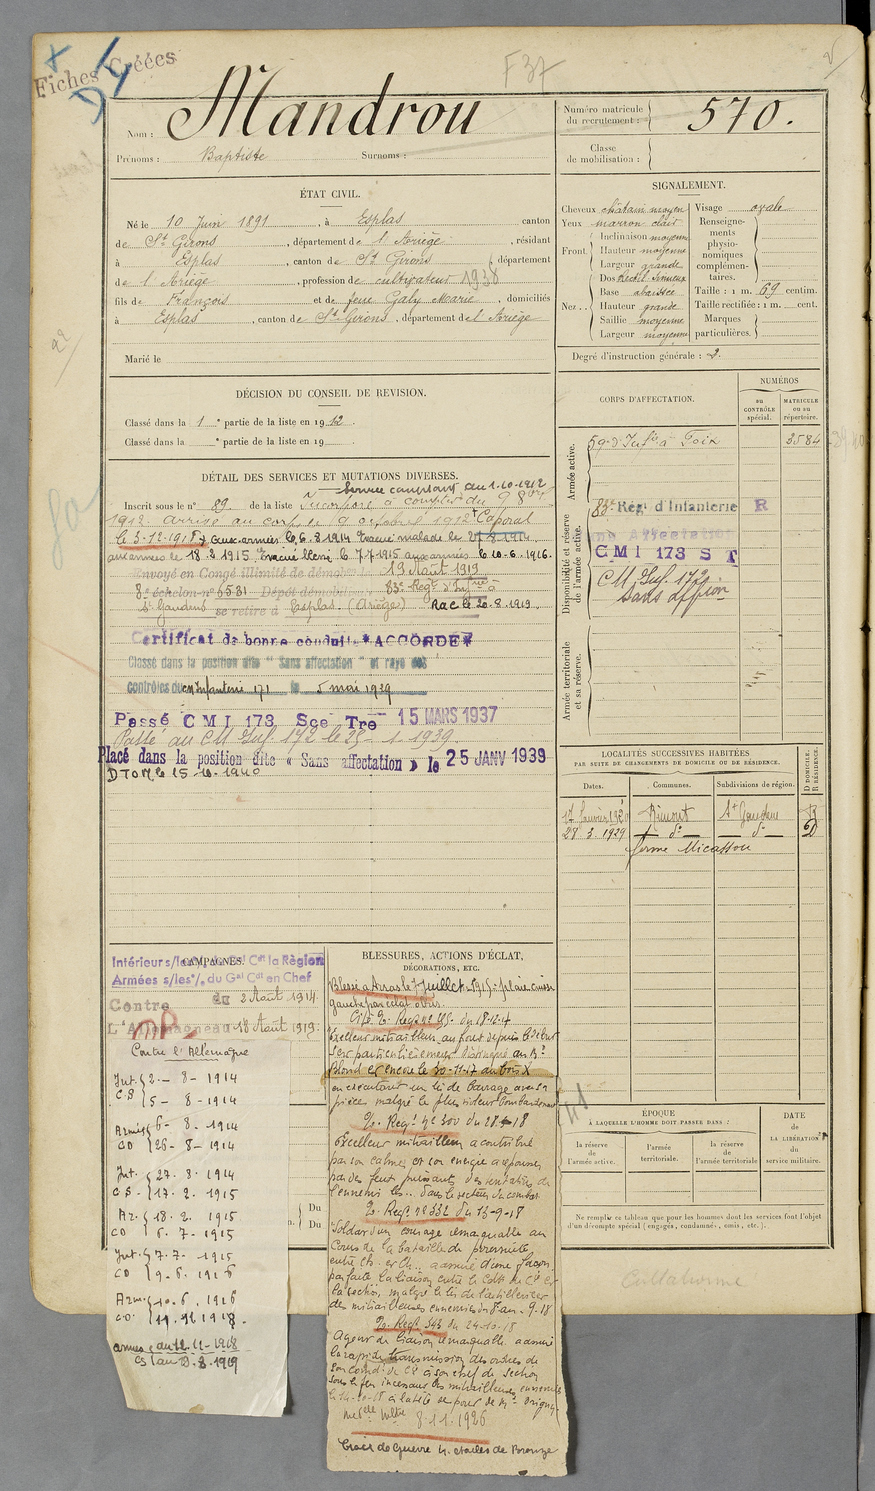 Fiches Créées
F 37
Nom : Mandrou
Prénoms : Baptiste Surnoms :
Numéro matricule du recrutement : 570.
Classe de mobilisation :
ÉTAT CIVIL.
Né le 10 Juin 1891, à Esplas canton
de St Girons, département de l'Ariège, résidant
à Esplas, canton de St Girons, département
de l'Ariège, profession de cultivateur 1938
fils de François et de feue Galy Marie, domiciliés
à Esplas, canton de St Girons, département de l'Ariège
Marié le
SIGNALEMENT.
Cheveux châtain moyen
Yeux marron clair
Front. Inclinaison moyenne
Hauteur moyenne
Largeur grande
Nez. Dos Rectil. Sinueux
Base abaissée
Hauteur grande
Saillie moyenne
Largeur moyenne
Visage ovale
Renseignements physionomiques complémentaires.
Taille : 1 m. 69 centim.
Taille rectifiée : 1 m. cent.
Marques particulières.
Degré d'instruction générale : 2.
DÉCISION DU CONSEIL DE REVISION.
Classé dans la 1e partie de la liste en 1912.
Classé dans la e partie de la liste en 19
DÉTAIL DES SERVICES ET MUTATIONS DIVERSES.
Service comptant du 1.10.1912
Inscrit sous le n° 29. de la liste Incorporé à compter du 9 8bre
1912. Arrivé au corps le 9 octobre 1912 Caporal
le 3-12-1918 aux armées le 6.8.1914 Evacué malade le 27.8.1914
aux armées le 18.2.1915 Evacué blessé le 7.7.1915 aux armées le 10.6.1916.
Envoyé en Congé illimité de démob 19 Août 1919
8e échelon n° 6581 Dépôt démobilisateur 83e Regt d'Infrie à
St Gaudens se retire à Esplas (Ariège) Rac le 20.8.1919.
Certificat de bonne conduite *ACCORDÉ*
Classé dans la position dite "Sans affectation" et rayé des
contrôles du cm Infanterie 171 le 5 mai 1929
Passé CMI 173 Sce Tre 15 MARS 1937
Passé au CM Inf. 172 le 25-1-1939
Placé dans la position dite « Sans affectation » le 25 JANV 1939
CORPS D'AFFECTATION.
NUMÉROS
au CONTRÔLE spécial.
MATRICULE ou au répertoire.
Armée active.
59e d'Infie à Foix 3584
Disponibilité et réserve de l'armée active.
83e Régt d'Infanterie R
CMI 173 ST
CM Inf. 172
Sans affion
Armée territoriale et sa réserve.
LOCALITÉS SUCCESSIVES HABITÉES
PAR SUITE DE CHANGEMENTS DE DOMICILE OU DE RÉSIDENCE.
Dates. Communes. Subdivisions de région. D DOMICILE. R RÉSIDENCE.
17 Janvier 1920 Rimont St Gaudens R
28 3. 1929 d° d° D
ferme Micassou
CAMPAGNES.
Intérieur s/les
Gal Cdt la Région
Armées s/les%, du Gal Cdt en Chef
Contre du 2 Août 1914.
L'Allemagne au 18 Août 1919.
Contre l'Allemagne
Int. 2 - 8 - 1914
C.S 5 - 8 - 1914
Armées 6 - 8 - 1914
CD 26 - 8 - 1914
Int. 27 . 8 . 1914
CS 17 . 2 . 1915
Ar. 18 . 2 . 1915
CD 6 . 7 - 1915
Int. 7 . 7 . 1915
CD 9 . 6 . 1916
Arm. 10 . 6 . 1916
CD 11 . 11 1918.
armées du 12.11.1918
CS au . 8. 1919
Du
Du
BLESSURES, ACTIONS D'ÉCLAT,
DÉCORATIONS, ETC.
Blessé à Arras le 7 Juillet 1915. plaie cuisse
gauche par éclat d'obus.
Excellent mitrailleur, au front depuis le début
s'est particulièrement distingué au Mt
Blond et encore le 30-11-17 au bois
en exécutant un tir de barrage avec sa
pièce malgré le plus violent bombardement
O. Regt n° 300 du 28-4-18
Excellent mitrailleur a contribué
par son calme et son énergie à repousser
par des feux puissants des tentatives de
l'ennemi
O. Regt n° 332 du 13-9-18
Soldat d'un courage remarquable au
Cours de la bataille de poursuite
assuré d'une façon
parfaite la liaison entre le Cdt de Cie et
la section, malgré le tir de l'artillerie et
des mitrailleuses ennemies
O. Regt 343 du 24-10-18
Agent de liaison remarquable a assuré
la rapide transmission des ordres de
son Comdt de Cie à son chef de section
sous le feu incessant des mitrailleuses ennemies
Medle Mltre 8.11.1926
Croix de Guerre 4 étoiles de Bronze
ÉPOQUE
À LAQUELLE L'HOMME DOIT PASSER DANS :
la réserve de l'armée active.
l'armée territoriale.
la réserve de l'armée territoriale
DATE de LA LIBÉRATION du service militaire.
Ne remplir ce tableau que pour les hommes dont les services font l'objet
d'un décompte spécial (engagés, condamnés, omis, etc.).